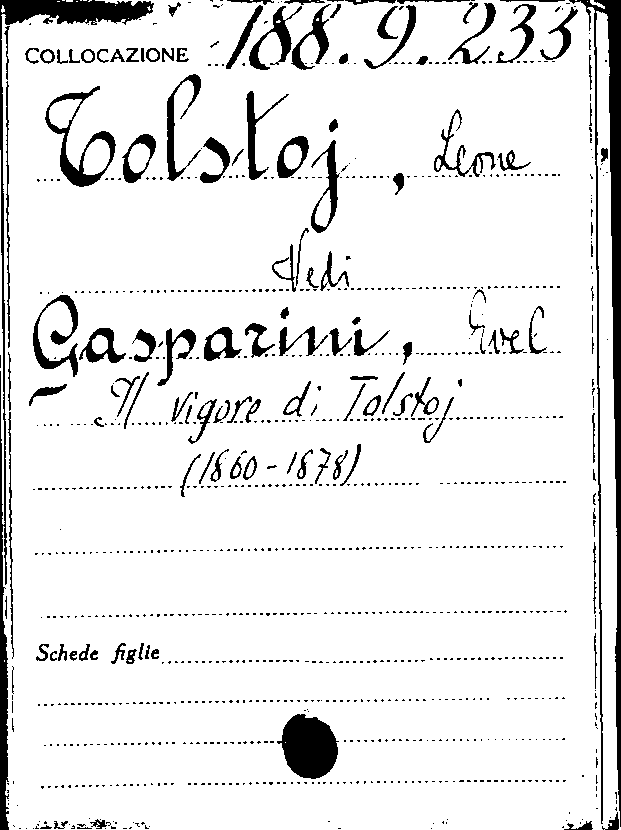 COLLOCAZIONE 188.9.233
Tolstoj, Leone
Vedi
Gasparini, Evel
Il vigore di Tolstoj
(1860-1878)
Schede figlie